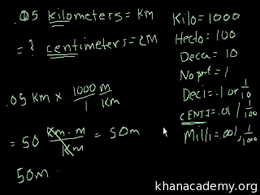 .05 kilometers = km
= ? centimeters = cm
.05 Km × 1000 m / 1 Km
= 50 Km. m / Km = 50m
50m
Kilo = 1000
Hecto = 100
Deca = 10
No pref = 1
Deci = .1 or 1/10
CENTI = .01 / 1/100
Milli = .001 / 1/1000
khanacademy.org